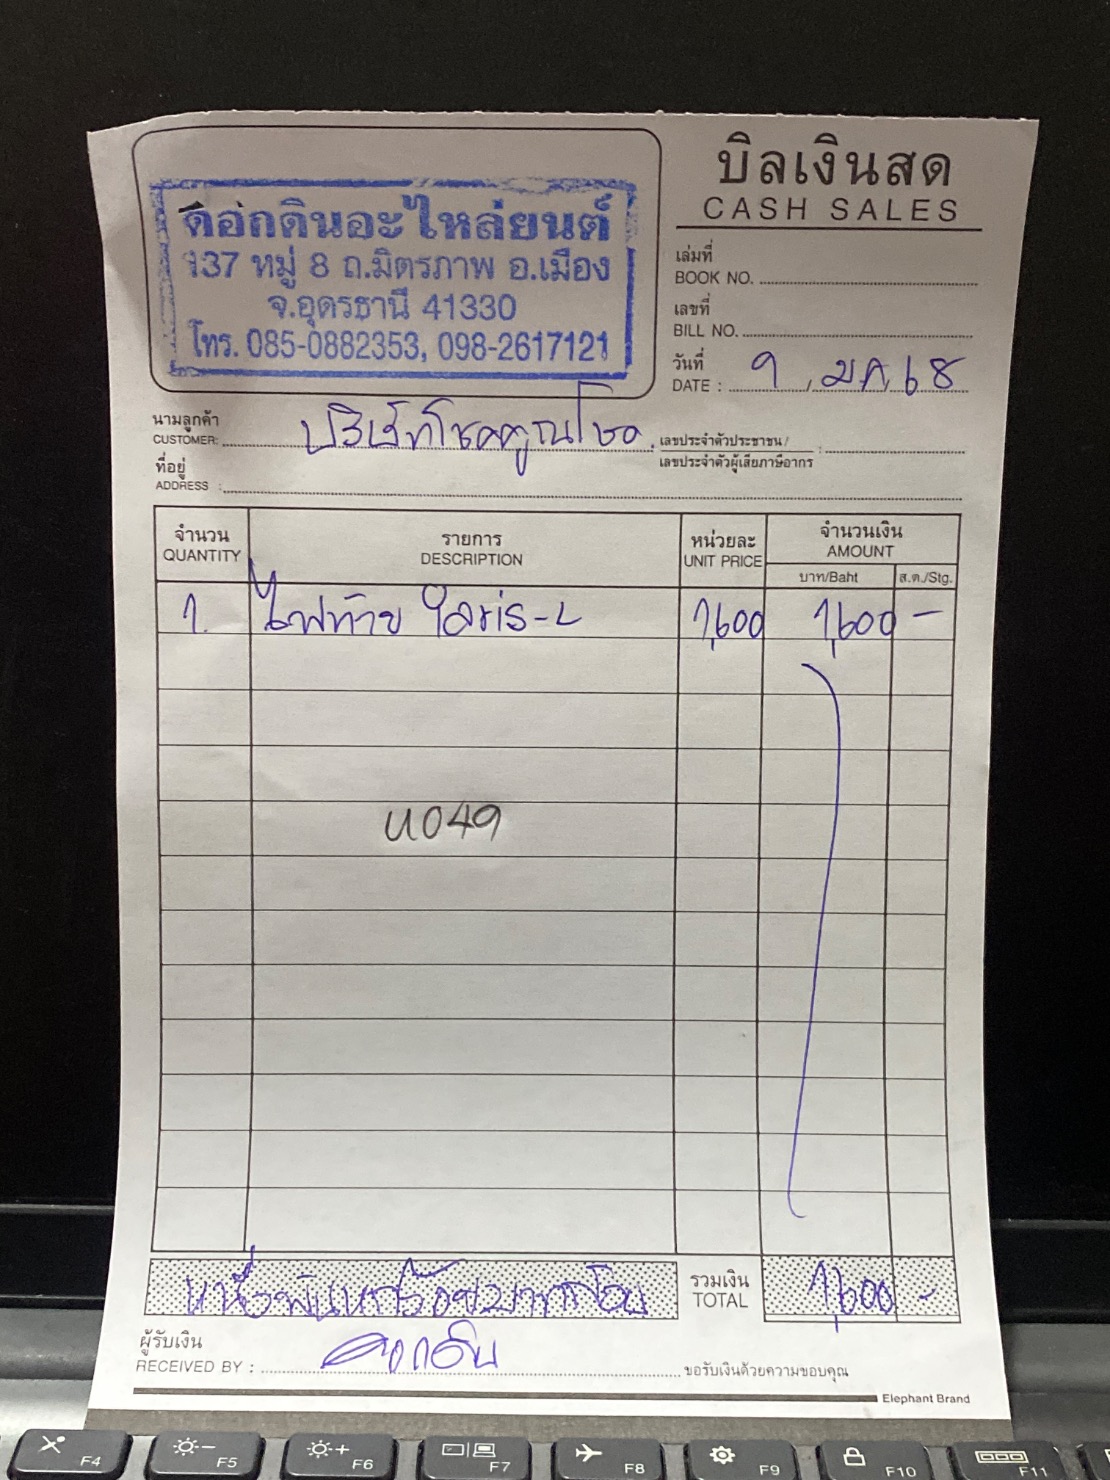 บิลเงินสด
CASH SALES
ดอกดินอะไหล่ยนต์
137 หมู่ 8 ถ.มิตรภาพ อ.เมือง
จ.อุดรธานี 41330
โทร. 085-0882353, 098-2617121
เล่มที่
BOOK NO.
เลขที่
BILL NO.
วันที่
DATE : 9 / มค / 68
นามลูกค้า
CUSTOMER: บริษัทโชคคูณโชค
เลขประจำตัวประชาชน /
เลขประจำตัวผู้เสียภาษีอากร :
ที่อยู่
ADDRESS :
จำนวน รายการ หน่วยละ จำนวนเงิน
QUANTITY DESCRIPTION UNIT PRICE AMOUNT
บาท/Baht ส.ต./Stg.
1. ไฟท้าย Yaris-L 1,600 1,600 -
U049
หนึ่งพันหกร้อยบาทถ้วน
รวมเงิน
TOTAL 1,600 -
ผู้รับเงิน
RECEIVED BY : ดอกดิน ขอรับเงินด้วยความขอบคุณ
Elephant Brand
F4 F5 F6 F7 F8 F9 F10 F11